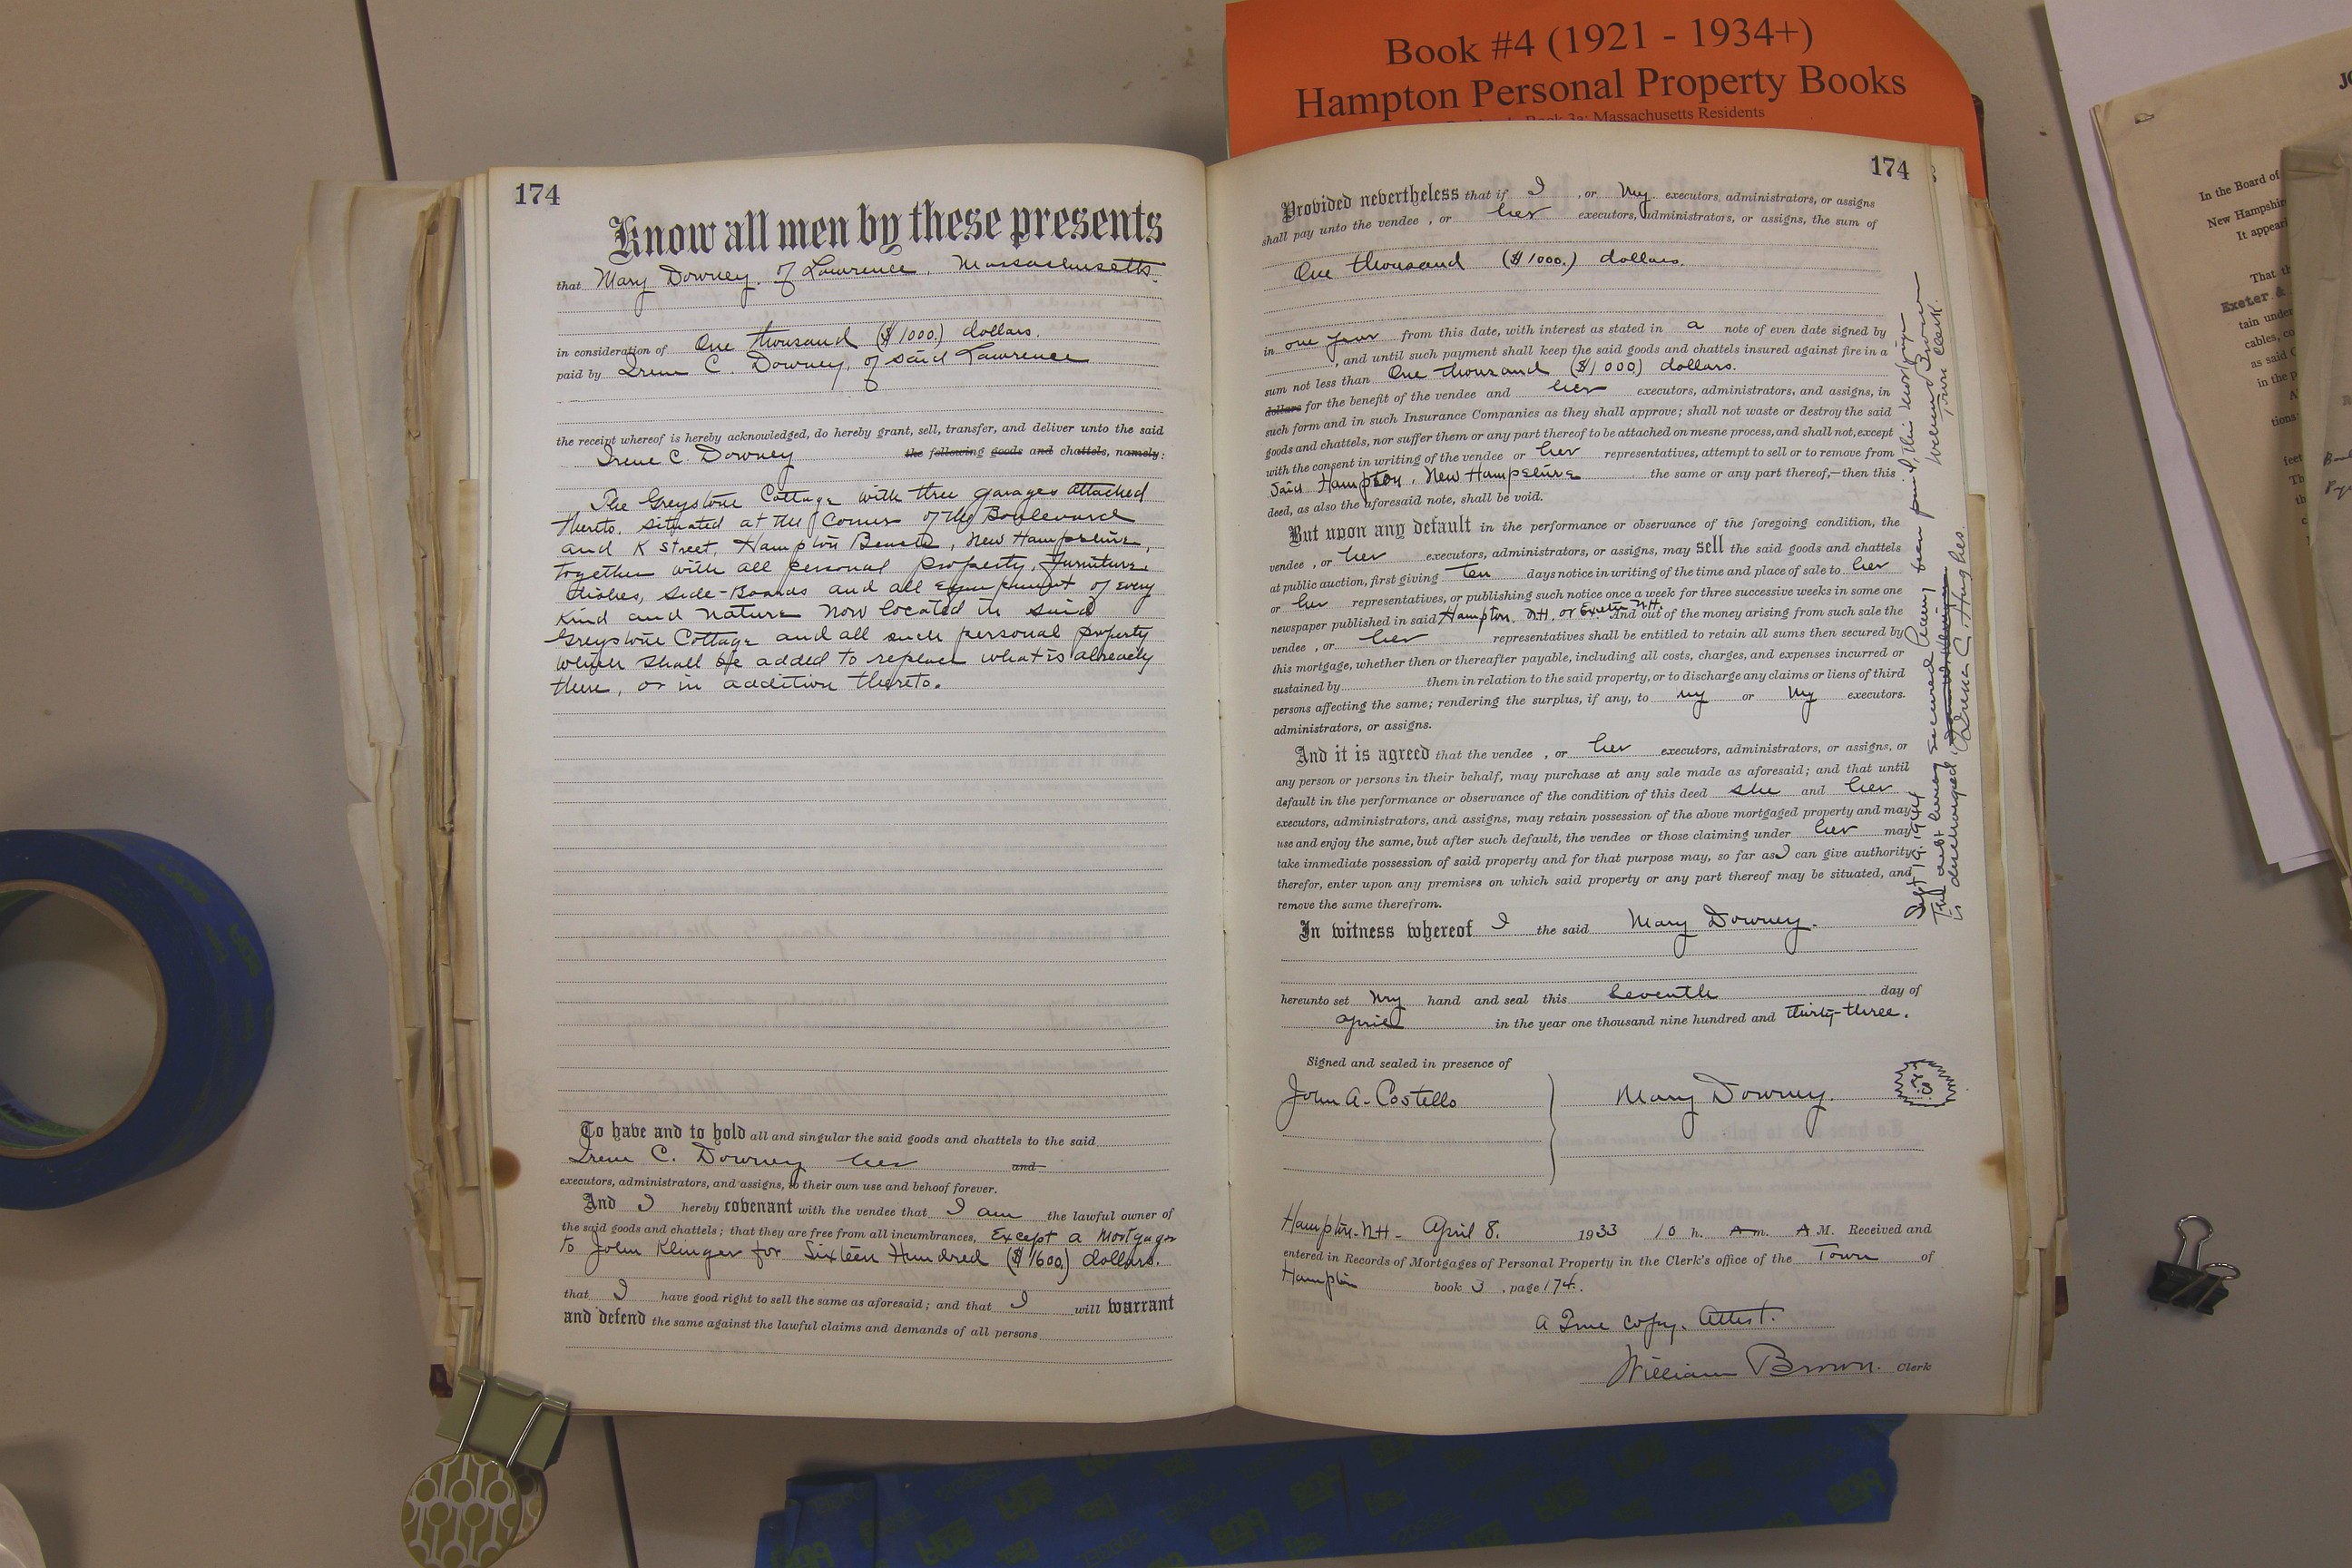 Book #4 (1921 - 1934+)
Hampton Personal Property Books
Book 3a: Massachusetts Residents
174
Know all men by these presents
that Mary Downey, of Lawrence, Massachusetts.
in consideration of One thousand ($1000.) dollars.
paid by Irene C. Downey, of said Lawrence
the receipt whereof is hereby acknowledged, do hereby grant, sell, transfer, and deliver unto the said
Irene C. Downey the following goods and chattels, namely:
The Greystone Cottage with three garages attached
thereto, situated at the Corner of the Boulevard
and K Street, Hampton Beach, New Hampshire,
together with all personal property, furniture
dishes, side-Boards and all equipment of every
kind and nature now located in said
Greystone Cottage and all such personal property
which shall be added to replace what is already
there, or in addition thereto.
To have and to hold all and singular the said goods and chattels to the said
Irene C. Downey her and
executors, administrators, and assigns, to their own use and behoof forever.
And I hereby covenant with the vendee that I am the lawful owner of
the said goods and chattels; that they are free from all incumbrances, Except a Mortgage
to John Klinger for Sixteen Hundred ($1600.) dollars.
that I have good right to sell the same as aforesaid; and that I will warrant
and defend the same against the lawful claims and demands of all persons
174
Provided nevertheless that if I , or My executors, administrators, or assigns
shall pay unto the vendee , or her executors, administrators, or assigns, the sum of
One thousand ($1000.) dollars.
in one year from this date, with interest as stated in a note of even date signed by
, and until such payment shall keep the said goods and chattels insured against fire in a
sum not less than One thousand ($1000) dollars.
dollars for the benefit of the vendee and her executors, administrators, and assigns, in
such form and in such Insurance Companies as they shall approve; shall not waste or destroy the said
goods and chattels, nor suffer them or any part thereof to be attached on mesne process, and shall not, except
with the consent in writing of the vendee or her representatives, attempt to sell or to remove from
said Hampton, New Hampshire the same or any part thereof,—then this
deed, as also the aforesaid note, shall be void.
But upon any default in the performance or observance of the foregoing condition, the
vendee , or her executors, administrators, or assigns, may sell the said goods and chattels
at public auction, first giving ten days notice in writing of the time and place of sale to her
or her representatives, or publishing such notice once a week for three successive weeks in some one
newspaper published in said Hampton, N.H. or Exeter N.H. And out of the money arising from such sale the
vendee , or her representatives shall be entitled to retain all sums then secured by
this mortgage, whether then or thereafter payable, including all costs, charges, and expenses incurred or
sustained by them in relation to the said property, or to discharge any claims or liens of third
persons affecting the same; rendering the surplus, if any, to my or My executors.
administrators, or assigns.
And it is agreed that the vendee , or her executors, administrators, or assigns, or
any person or persons in their behalf, may purchase at any sale made as aforesaid; and that until
default in the performance or observance of the condition of this deed she and her
executors, administrators, and assigns, may retain possession of the above mortgaged property and may
use and enjoy the same, but after such default, the vendee or those claiming under her may
take immediate possession of said property and for that purpose may, so far as I can give authority
therefor, enter upon any premises on which said property or any part thereof may be situated, and
remove the same therefrom.
In witness whereof I the said Mary Downey.
hereunto set my hand and seal this seventh day of
April in the year one thousand nine hundred and thirty-three.
Signed and sealed in presence of
John A. Costello
Mary Downey.
Hampton-N.H- April 8. 1933 10 h. A m. A M. Received and
entered in Records of Mortgages of Personal Property in the Clerk's office of the Town of
Hampton book 3 , page 174.
A True copy. Attest.
William Brown. Clerk
Sept 19. 1944
The debt hereby secured having been paid, this mortgage
is discharged. Irene C. Hughes.
William Brown
Town Clerk.
In the Board of
New Hampshire
It appear
That th
Exeter &
tain under
cables, co
as said C
in the p
tions:
feet